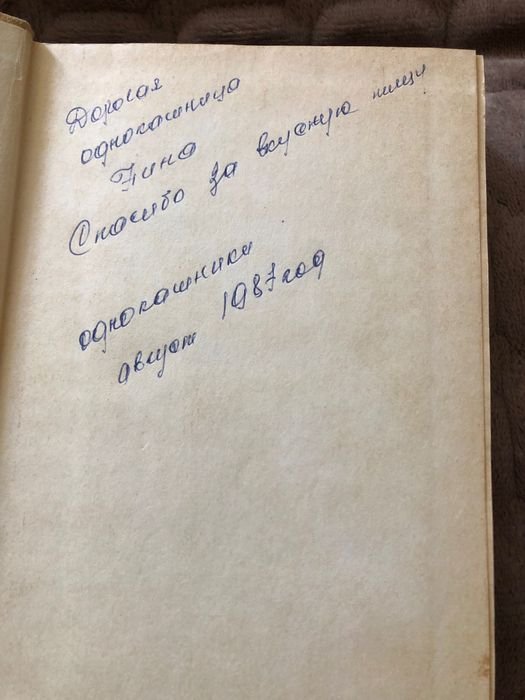 Дорогая
однокашница
Нина
Спасибо за вкусную пищу
однокашники
август 1987 год